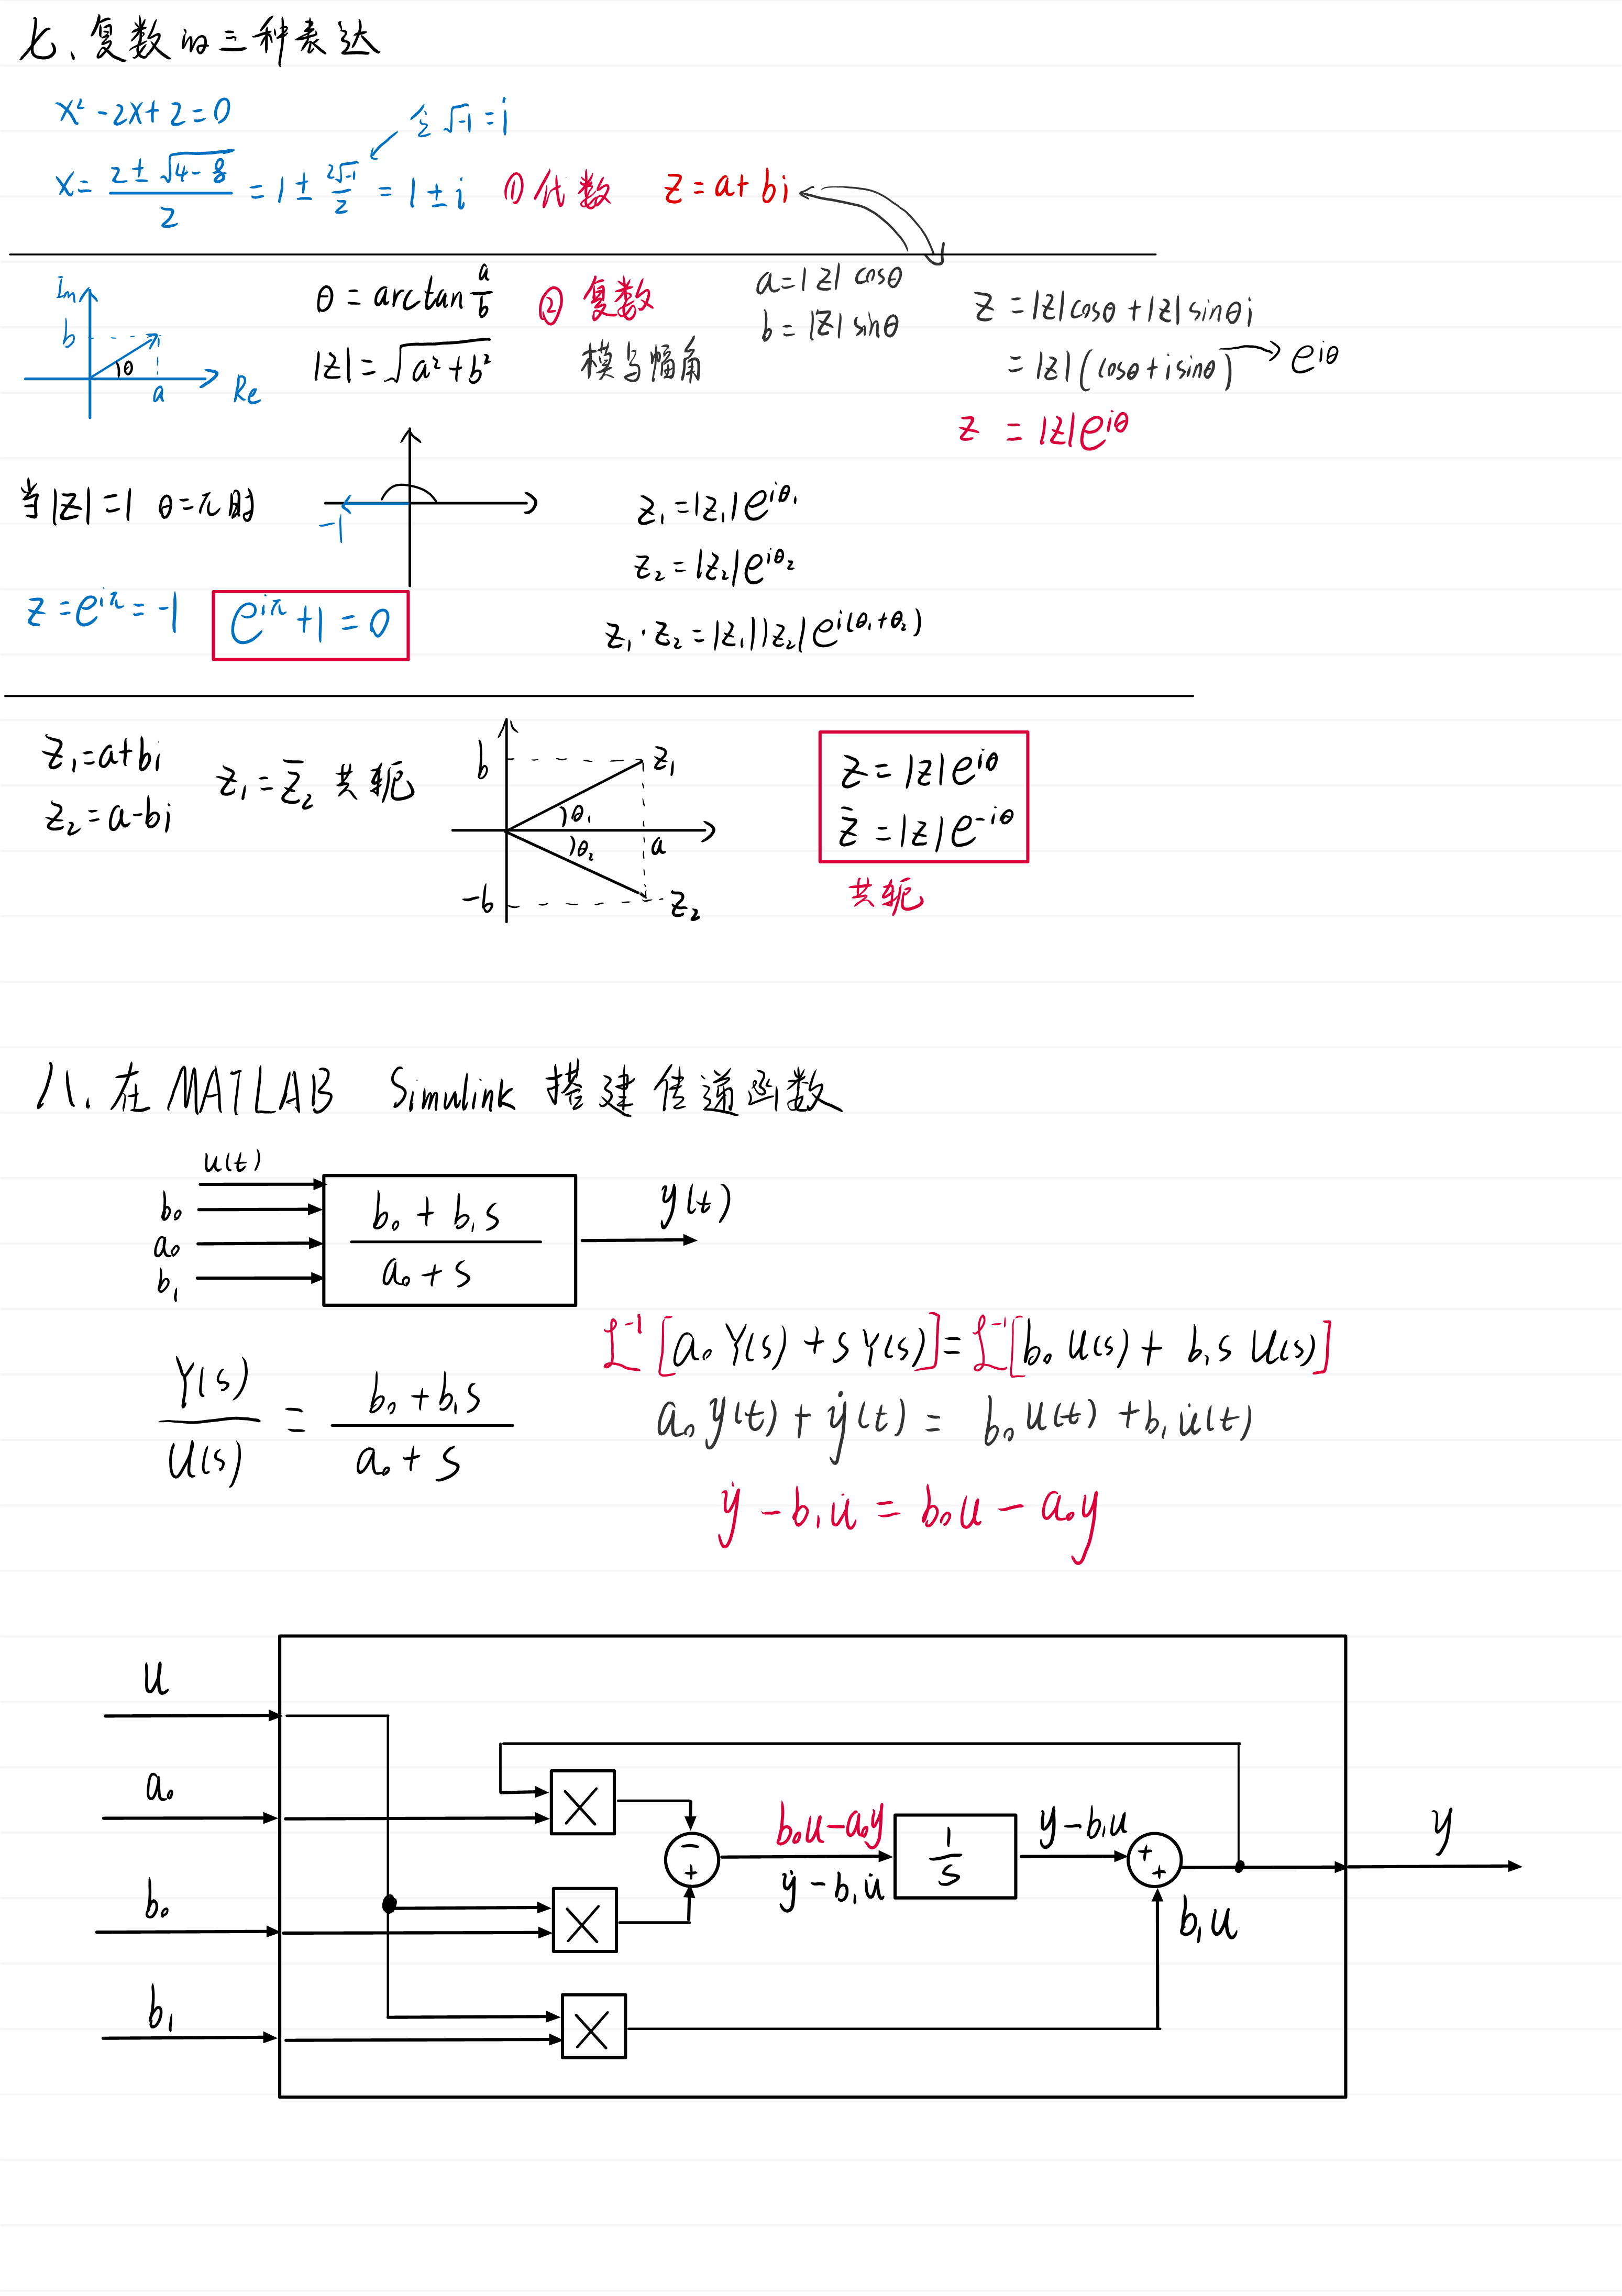 七、复数的三种表达
x² - 2x + 2 = 0
令 √-1 = i
x = (2 ± √4-8)/2 = 1 ± 2√-1/2 = 1 ± i
① 代数 z = a + bi
Im
b
θ
a
Re
θ = arctan a/b
|z| = √a²+b²
② 复数
模与幅角
a = |z| cosθ
b = |z| sinθ
z = |z|cosθ + |z|sinθi
= |z|(cosθ + isinθ) → eiθ
z = |z|e^iθ
当|z|=1 θ=π时
-1
z = e^iπ = -1
e^iπ + 1 = 0
z₁ = |z₁|e^iθ₁
z₂ = |z₂|e^iθ₂
z₁·z₂ = |z₁||z₂|e^i(θ₁+θ₂)
z₁ = a+bi
z₂ = a-bi
z₁ = z̄₂ 共轭
b
z₁
θ₁
θ₂
a
-b
z₂
z = |z|e^iθ
z̄ = |z|e^-iθ
共轭
八、在MATLAB Simulink 搭建传递函数
u(t)
b₀
a₀
b₁
(b₀ + b₁s)/(a₀ + s)
y(t)
Y(s)/U(s) = (b₀ + b₁s)/(a₀ + s)
ℒ⁻¹[a₀Y(s) + sY(s)] = ℒ⁻¹[b₀U(s) + b₁sU(s)]
a₀y(t) + ẏ(t) = b₀u(t) + b₁u̇(t)
ẏ - b₁u̇ = b₀u - a₀y
u
a₀
b₀
b₁
×
×
×
-
+
b₀u - a₀y
ẏ - b₁u̇
1/s
y - b₁u
+
+
b₁u
y